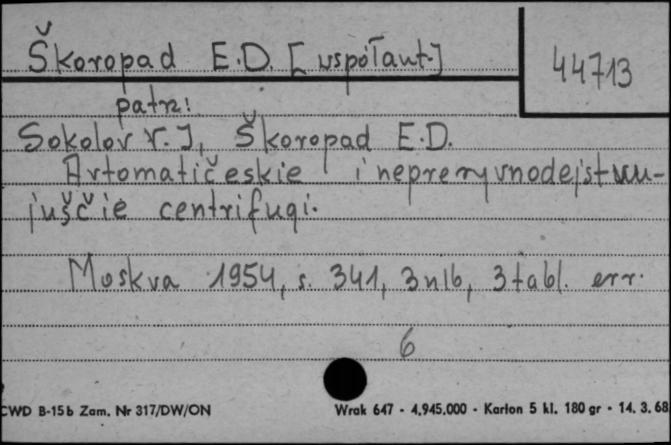 Škoropad E.D. [współaut.]
44713
patrz:
Sokolov V. I, Škoropad E.D.
Avtomatičeskie i neprerynodejstvu-
juščie centrifugi.
Moskva 1954, s. 341, 3 nlb, 3 tabl. err.
6
CWD B-15b Zam. Nr 317/DW/ON
Wrak 647 - 4.945.000 - Karton 5 kl. 180 gr - 14. 3. 68